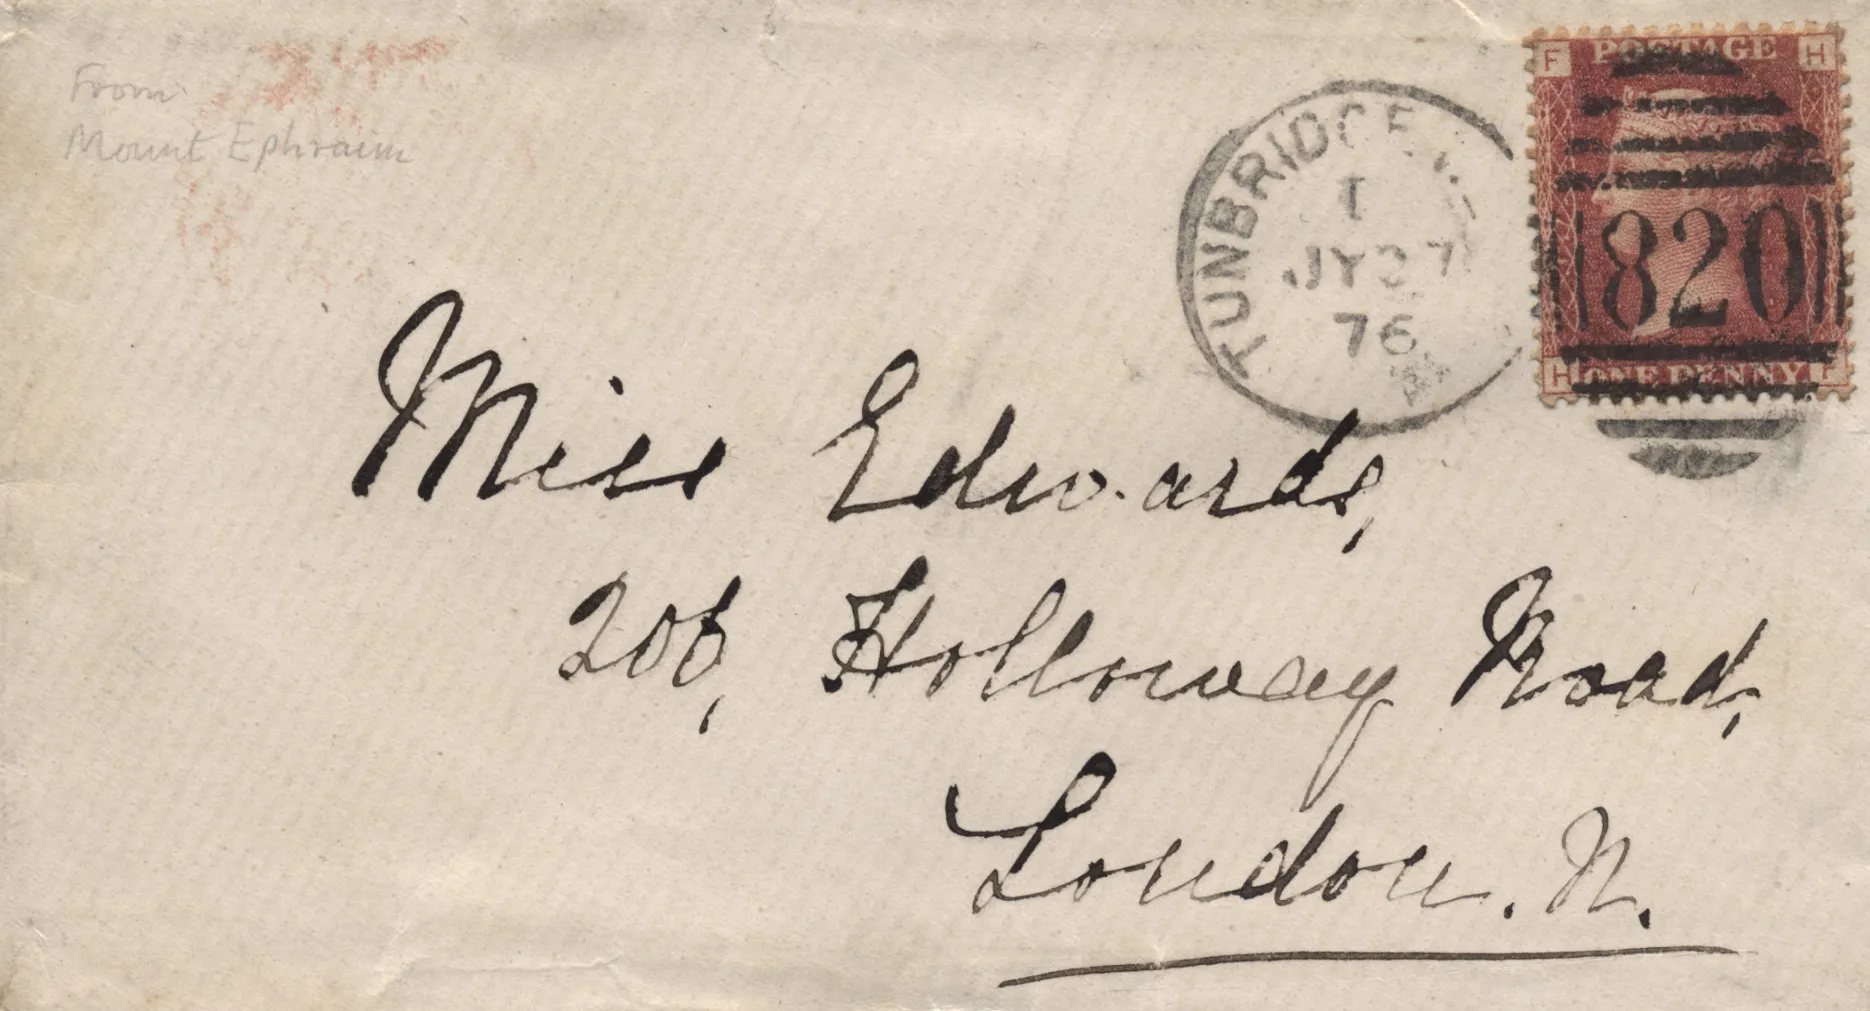 From
Mount Ephraim
F POSTAGE H
820
H ONE PENNY F
TUNBRIDGE
JY 27
76
Miss Edwards,
206, Holloway Road,
London. N.